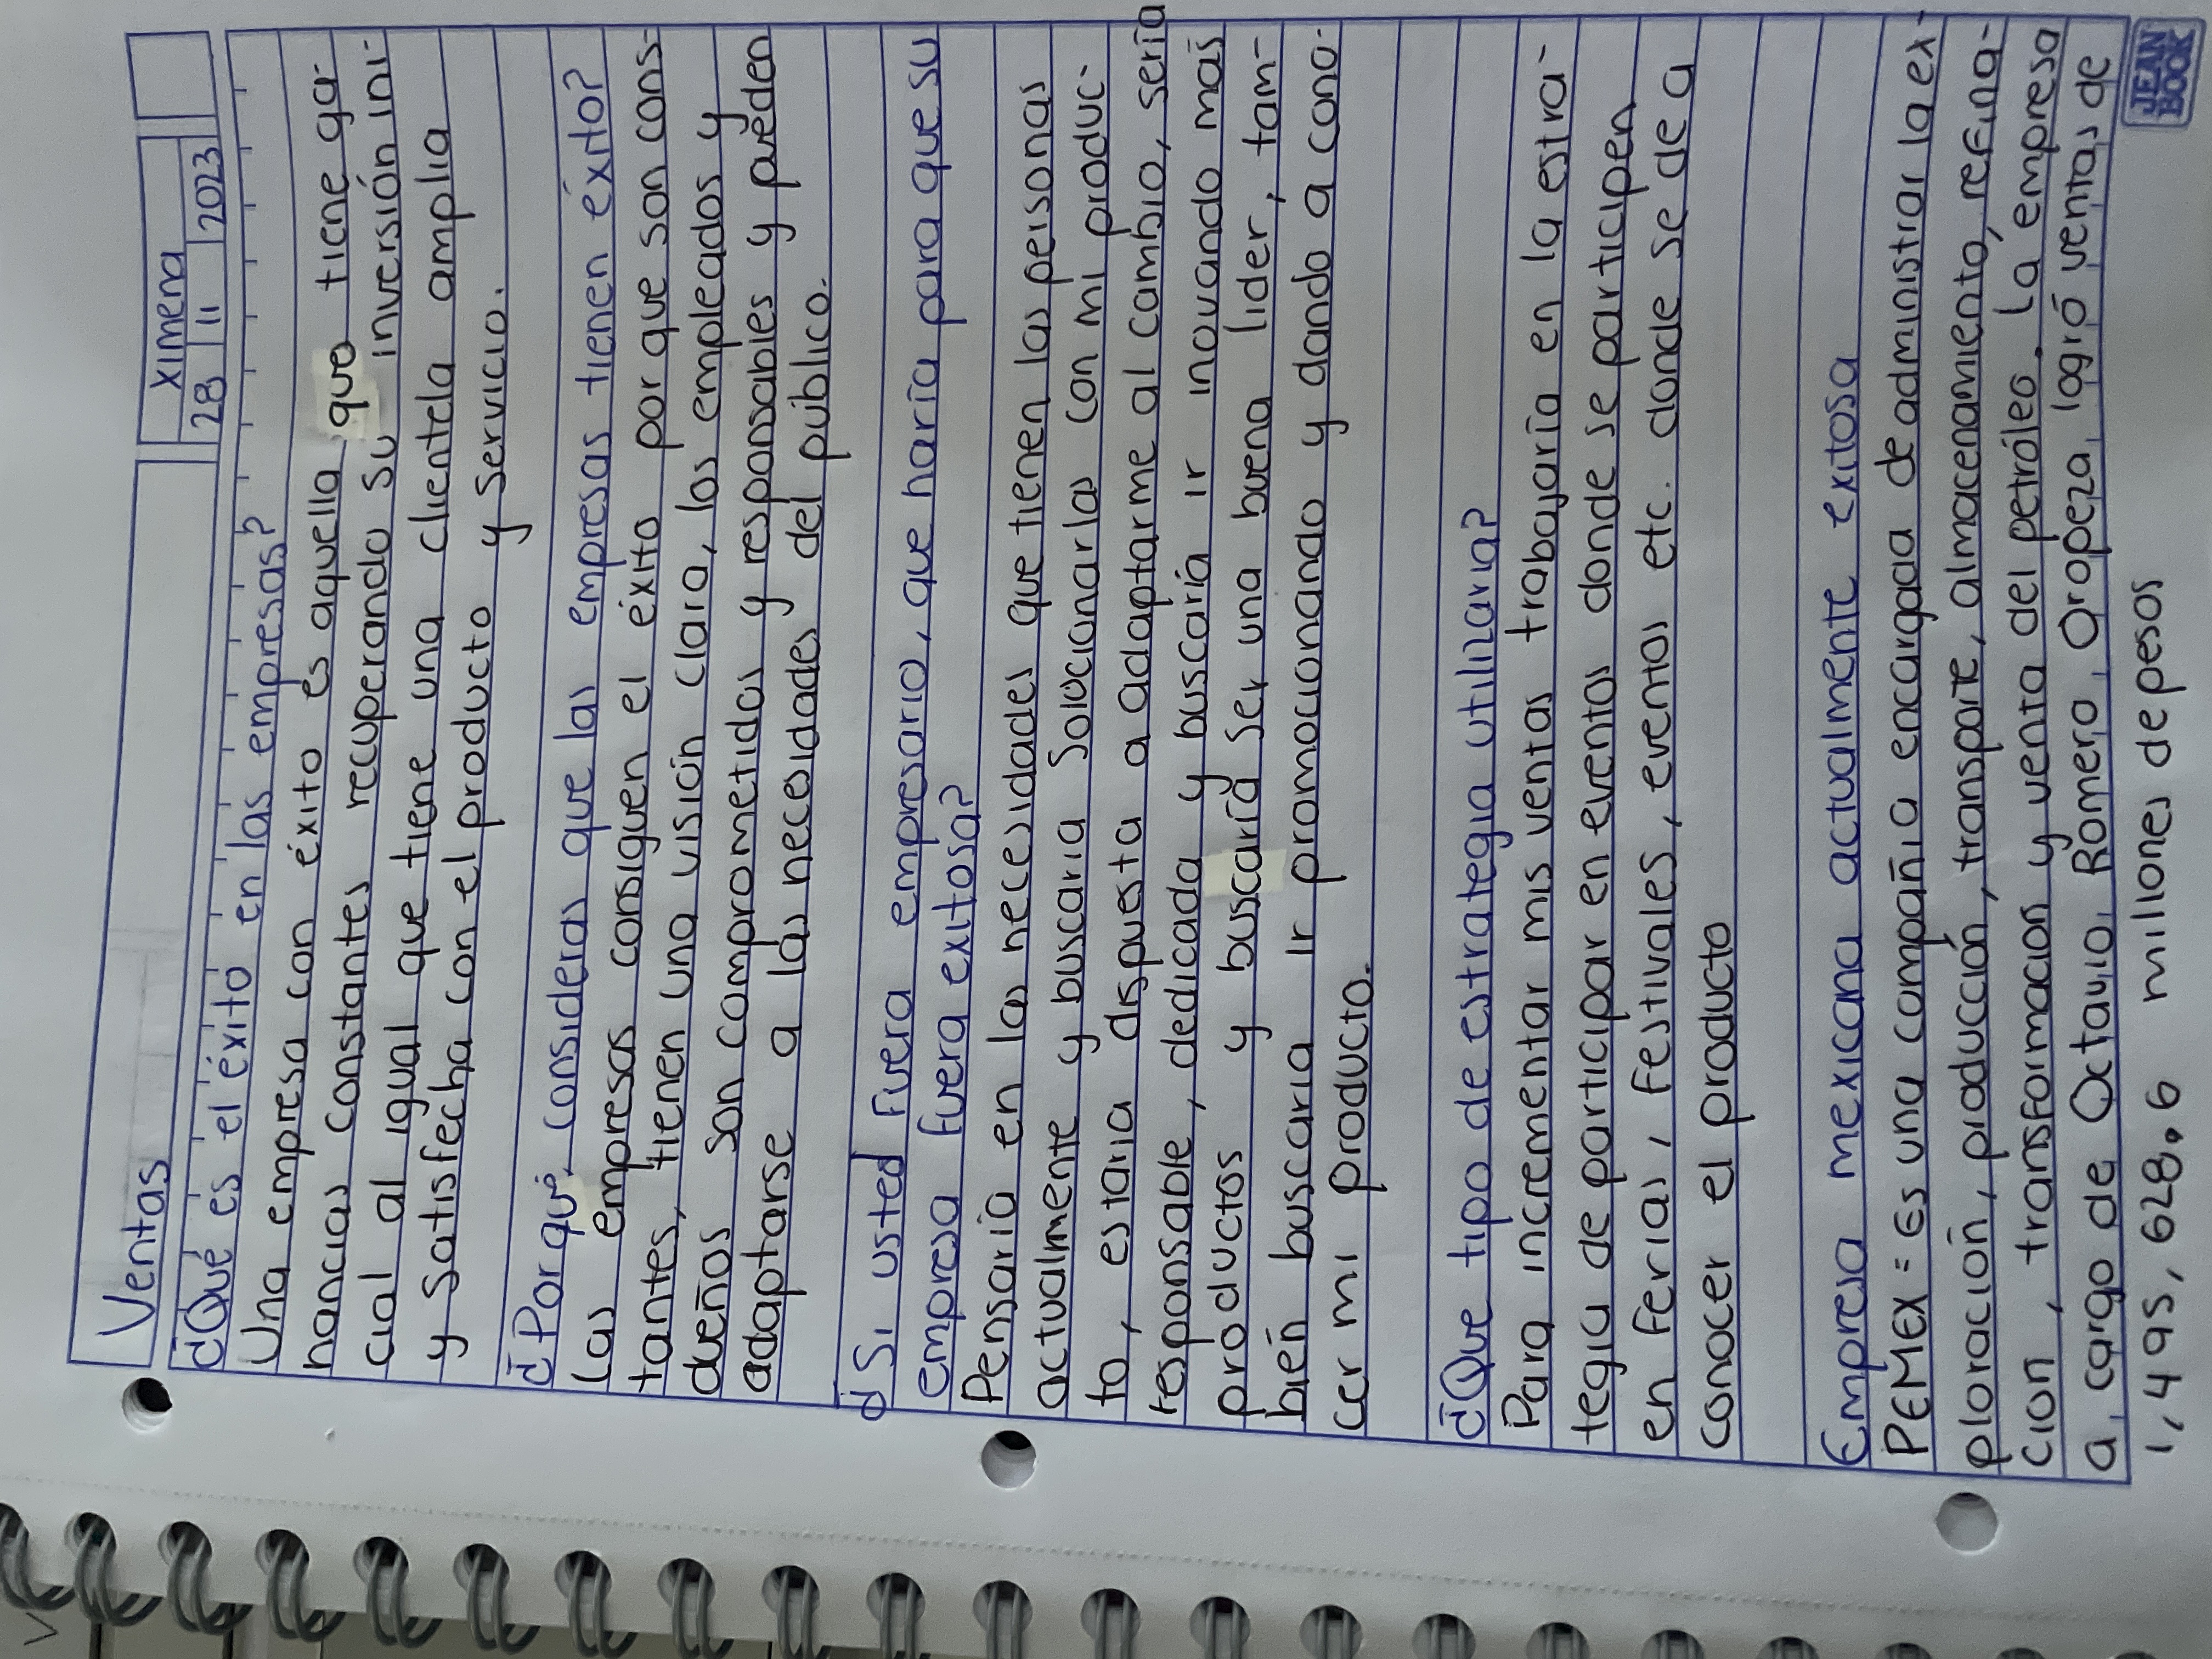 Ventas
Ximena
28 11 2023
¿Qué es el éxito en las empresas?
Una empresa con éxito es aquella que tiene ga-
nancias constantes recuperando su inversión ini-
cial al igual que tiene una clientela amplia
y satisfecha con el producto y servicio.
¿Por qué consideras que las empresas tienen éxito?
Las empresas consiguen el éxito por que son cons-
tantes, tienen una visión clara, los empleados y
dueños son comprometidos y responsables y pueden
adaptarse a las necesidades del público.
¿Si usted fuera empresario, que haría para que su
empresa fuera exitosa?
Pensaría en las necesidades que tienen las personas
actualmente y buscaria solucionarlas con mi produc-
to, estaria dispuesta a adaptarme al cambio, sería
responsable, dedicada y buscaría ir inovando más
productos y buscaría ser una buena lider, tam-
bién buscaria ir promocionando y dando a cono-
cer mi producto.
¿Que tipo de estrategia utilizaria?
Para incrementar mis ventas trabajaría en la estra-
tegia de participar en eventos donde se participen
en ferias, festivales, eventos etc. donde se de a
conocer el producto
Empresa mexicana actualmente exitosa
PEMEX = Es una compañia encargada de administrar la ex-
ploración, producción, transporte, almacenamiento, refina-
cion, transformacion y venta del petróleo. La empresa
a cargo de Octavio Romero Oropeza logró ventas de
1,495,628.6 millones de pesos
JEAN
BOOK